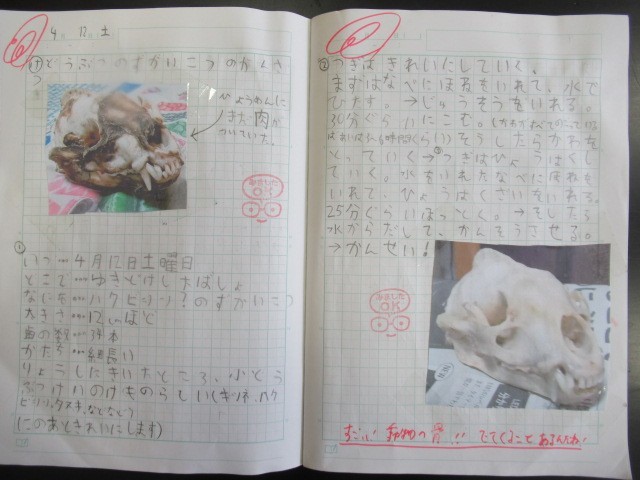 4. 12. 土
けどうぶつのずがいこつのかんさつ
ひょうめんに
まだ肉が
ついていた。
みました
OK
①
いつ…4月12日土曜日
どこで…ゆきどけしたばしょ
なにを…ハクビシン?のずがいこつ
大きさ…12cmほど
歯の数…34本
かたち…細長い
りょこしたきいたところ、小どう
ぶつけいのけものらしい(キツネ、ハク
ビシン、タヌキ、などなど)
(このあときれいにします)
② つぎはきれいにしていく。
まずはなべにほねをいれて、水で
ひたす。→じゅうそうをいれる。
30分ぐらいにこむ。
そうしたらかわを
とっていく→つぎはひょうはくし
ていく。水をいれたなべにほねを
いれて、ひょうはくざいをいれる。
25分ぐらいほっとく。→そしたら
水からだして、かんそうさせる。
→かんせい!
みました
OK
すごい 動物の骨!! でてくることあるんだね!